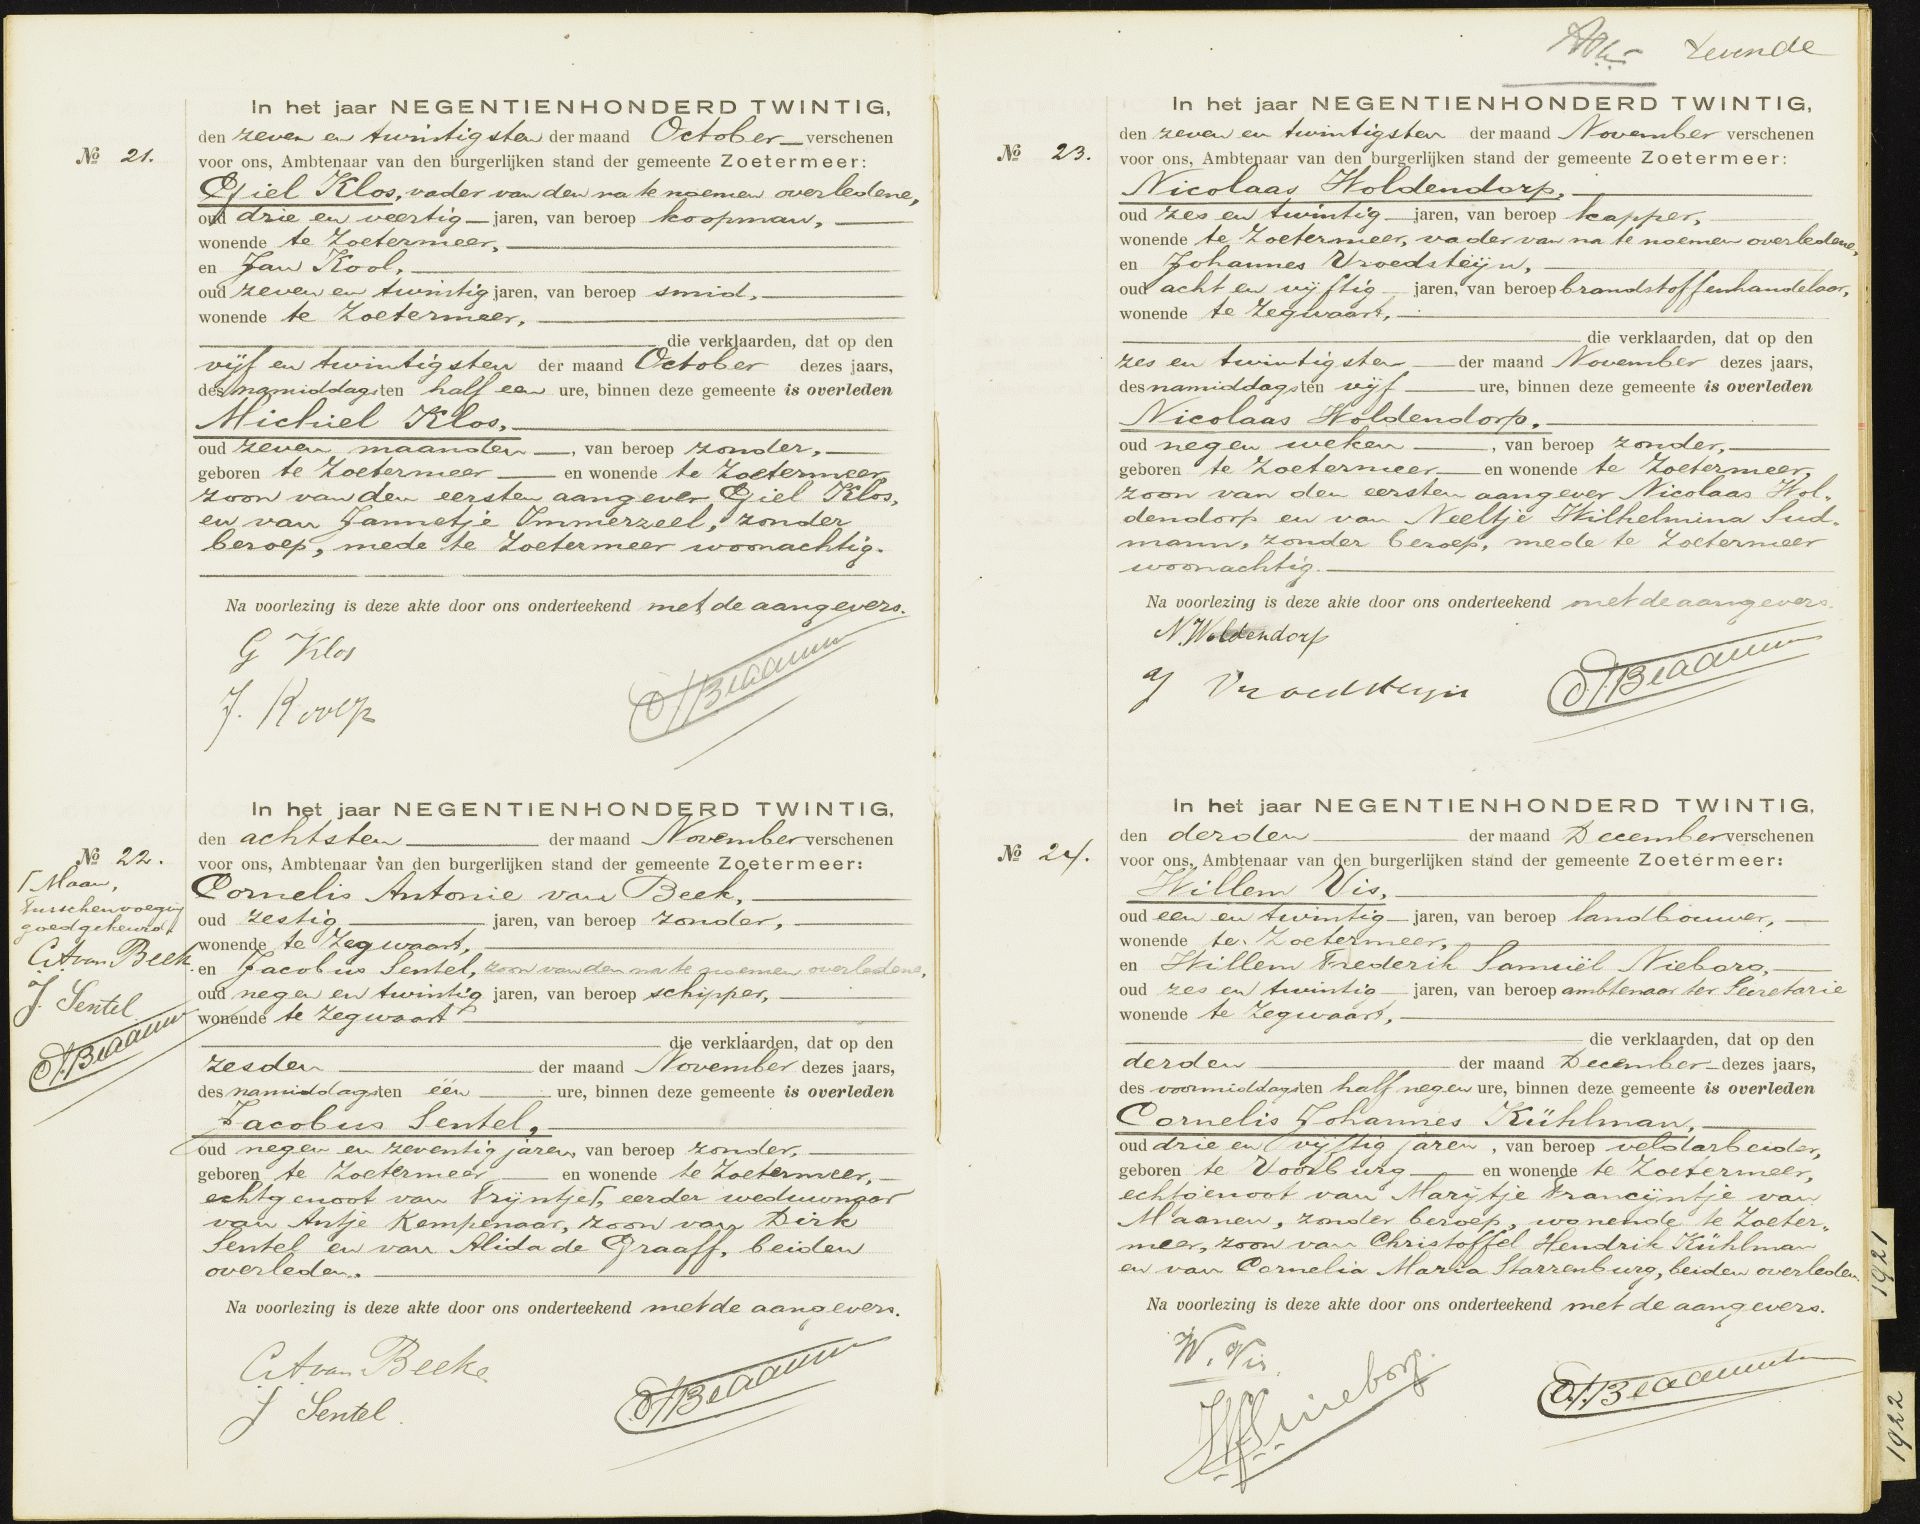 In het jaar NEGENTIENHONDERD TWINTIG,
den zeven en twintigsten der maand October verschenen
No 21.
voor ons, Ambtenaar van den burgerlijken stand der gemeente Zoetermeer:
Giel Klos, vader van den na te noemen overledene,
oud drie en veertig jaren, van beroep koopman,
wonende te Zoetermeer,
en Jan Kool,
oud zeven en twintig jaren, van beroep smid,
wonende te Zoetermeer,
die verklaarden, dat op den
vijf en twintigsten der maand October dezes jaars,
des namiddags ten half een ure, binnen deze gemeente is overleden
Michiel Klos,
oud zeven maanden, van beroep zonder,
geboren te Zoetermeer en wonende te Zoetermeer
zoon van den eersten aangever Giel Klos,
en van Jannetje Immerzeel, zonder
beroep, mede te Zoetermeer woonachtig.
Na voorlezing is deze akte door ons onderteekend met de aangevers.
G Klos
J.
In het jaar NEGENTIENHONDERD TWINTIG,
den achtsten der maand November verschenen
No 22.
voor ons, Ambtenaar van den burgerlijken stand der gemeente Zoetermeer:
Γ Maan,
Tusschenvoeging
goedgekeurd
CA van Beek
J. Sentel
Cornelis Antonie van Beek,
oud zestig jaren, van beroep zonder,
wonende te Zegwaart,
en Jacobus Sentel, zoon van den na te noemen overledene,
oud negen en twintig jaren, van beroep schipper,
wonende te Zegwaart
die verklaarden, dat op den
zesden der maand November dezes jaars,
des namiddags ten één ure, binnen deze gemeente is overleden
Jacobus Sentel,
oud negen en zeventig jaren, van beroep zonder,
geboren te Zoetermeer en wonende te Zoetermeer,
echtgenoot van Trijntje Γ, eerder weduwnaar
van Antje Kempenaar, zoon van Dirk
Sentel en van Alida de Graaff, beiden
overleden.
Na voorlezing is deze akte door ons onderteekend met de aangevers.
C.A. van Beek
J Sentel.
zevende
In het jaar NEGENTIENHONDERD TWINTIG,
den zeven en twintigsten der maand November verschenen
No 23.
voor ons, Ambtenaar van den burgerlijken stand der gemeente Zoetermeer:
Nicolaas Woldendorp,
oud zes en twintig jaren, van beroep kapper,
wonende te Zoetermeer, vader van na te noemen overledene,
en Johannes Vroedsteijn,
oud acht en vijftig jaren, van beroep brandstoffenhandelaar,
wonende te Zegwaart,
die verklaarden, dat op den
zes en twintigsten der maand November dezes jaars,
des namiddags ten vijf ure, binnen deze gemeente is overleden
Nicolaas Woldendorp,
oud negen weken, van beroep zonder,
geboren te Zoetermeer en wonende te Zoetermeer,
zoon van den eersten aangever Nicolaas Wol-
dendorp en van Neeltje Wilhelmina Sud-
mann, zonder beroep, mede te Zoetermeer
woonachtig.
Na voorlezing is deze akte door ons onderteekend met de aangevers.
N. Woldendorp
J Vroedsteyn
In het jaar NEGENTIENHONDERD TWINTIG,
den derden der maand December verschenen
No 24.
voor ons, Ambtenaar van den burgerlijken stand der gemeente Zoetermeer:
Willem Vis,
oud een en twintig jaren, van beroep landbouwer,
wonende te Zoetermeer,
en Willem Frederik Samuël Nieborg,
oud zes en twintig jaren, van beroep ambtenaar ter Secretarie
wonende te Zegwaart,
die verklaarden, dat op den
derden der maand December dezes jaars,
des voormiddags ten half negen ure, binnen deze gemeente is overleden
Cornelis Johannes Kühlman,
oud drie en vijftig jaren, van beroep veldarbeider,
geboren te Voorburg en wonende te Zoetermeer,
echtgenoot van Marijtje Francijntje van
Maanen, zonder beroep, wonende te Zoeter-
meer, zoon van Christoffel Hendrik Kühlman
en van Cornelia Maria Starrenburg, beiden overleden.
Na voorlezing is deze akte door ons onderteekend met de aangevers.
W. Vis.
WFSNieborg.
1921
1922